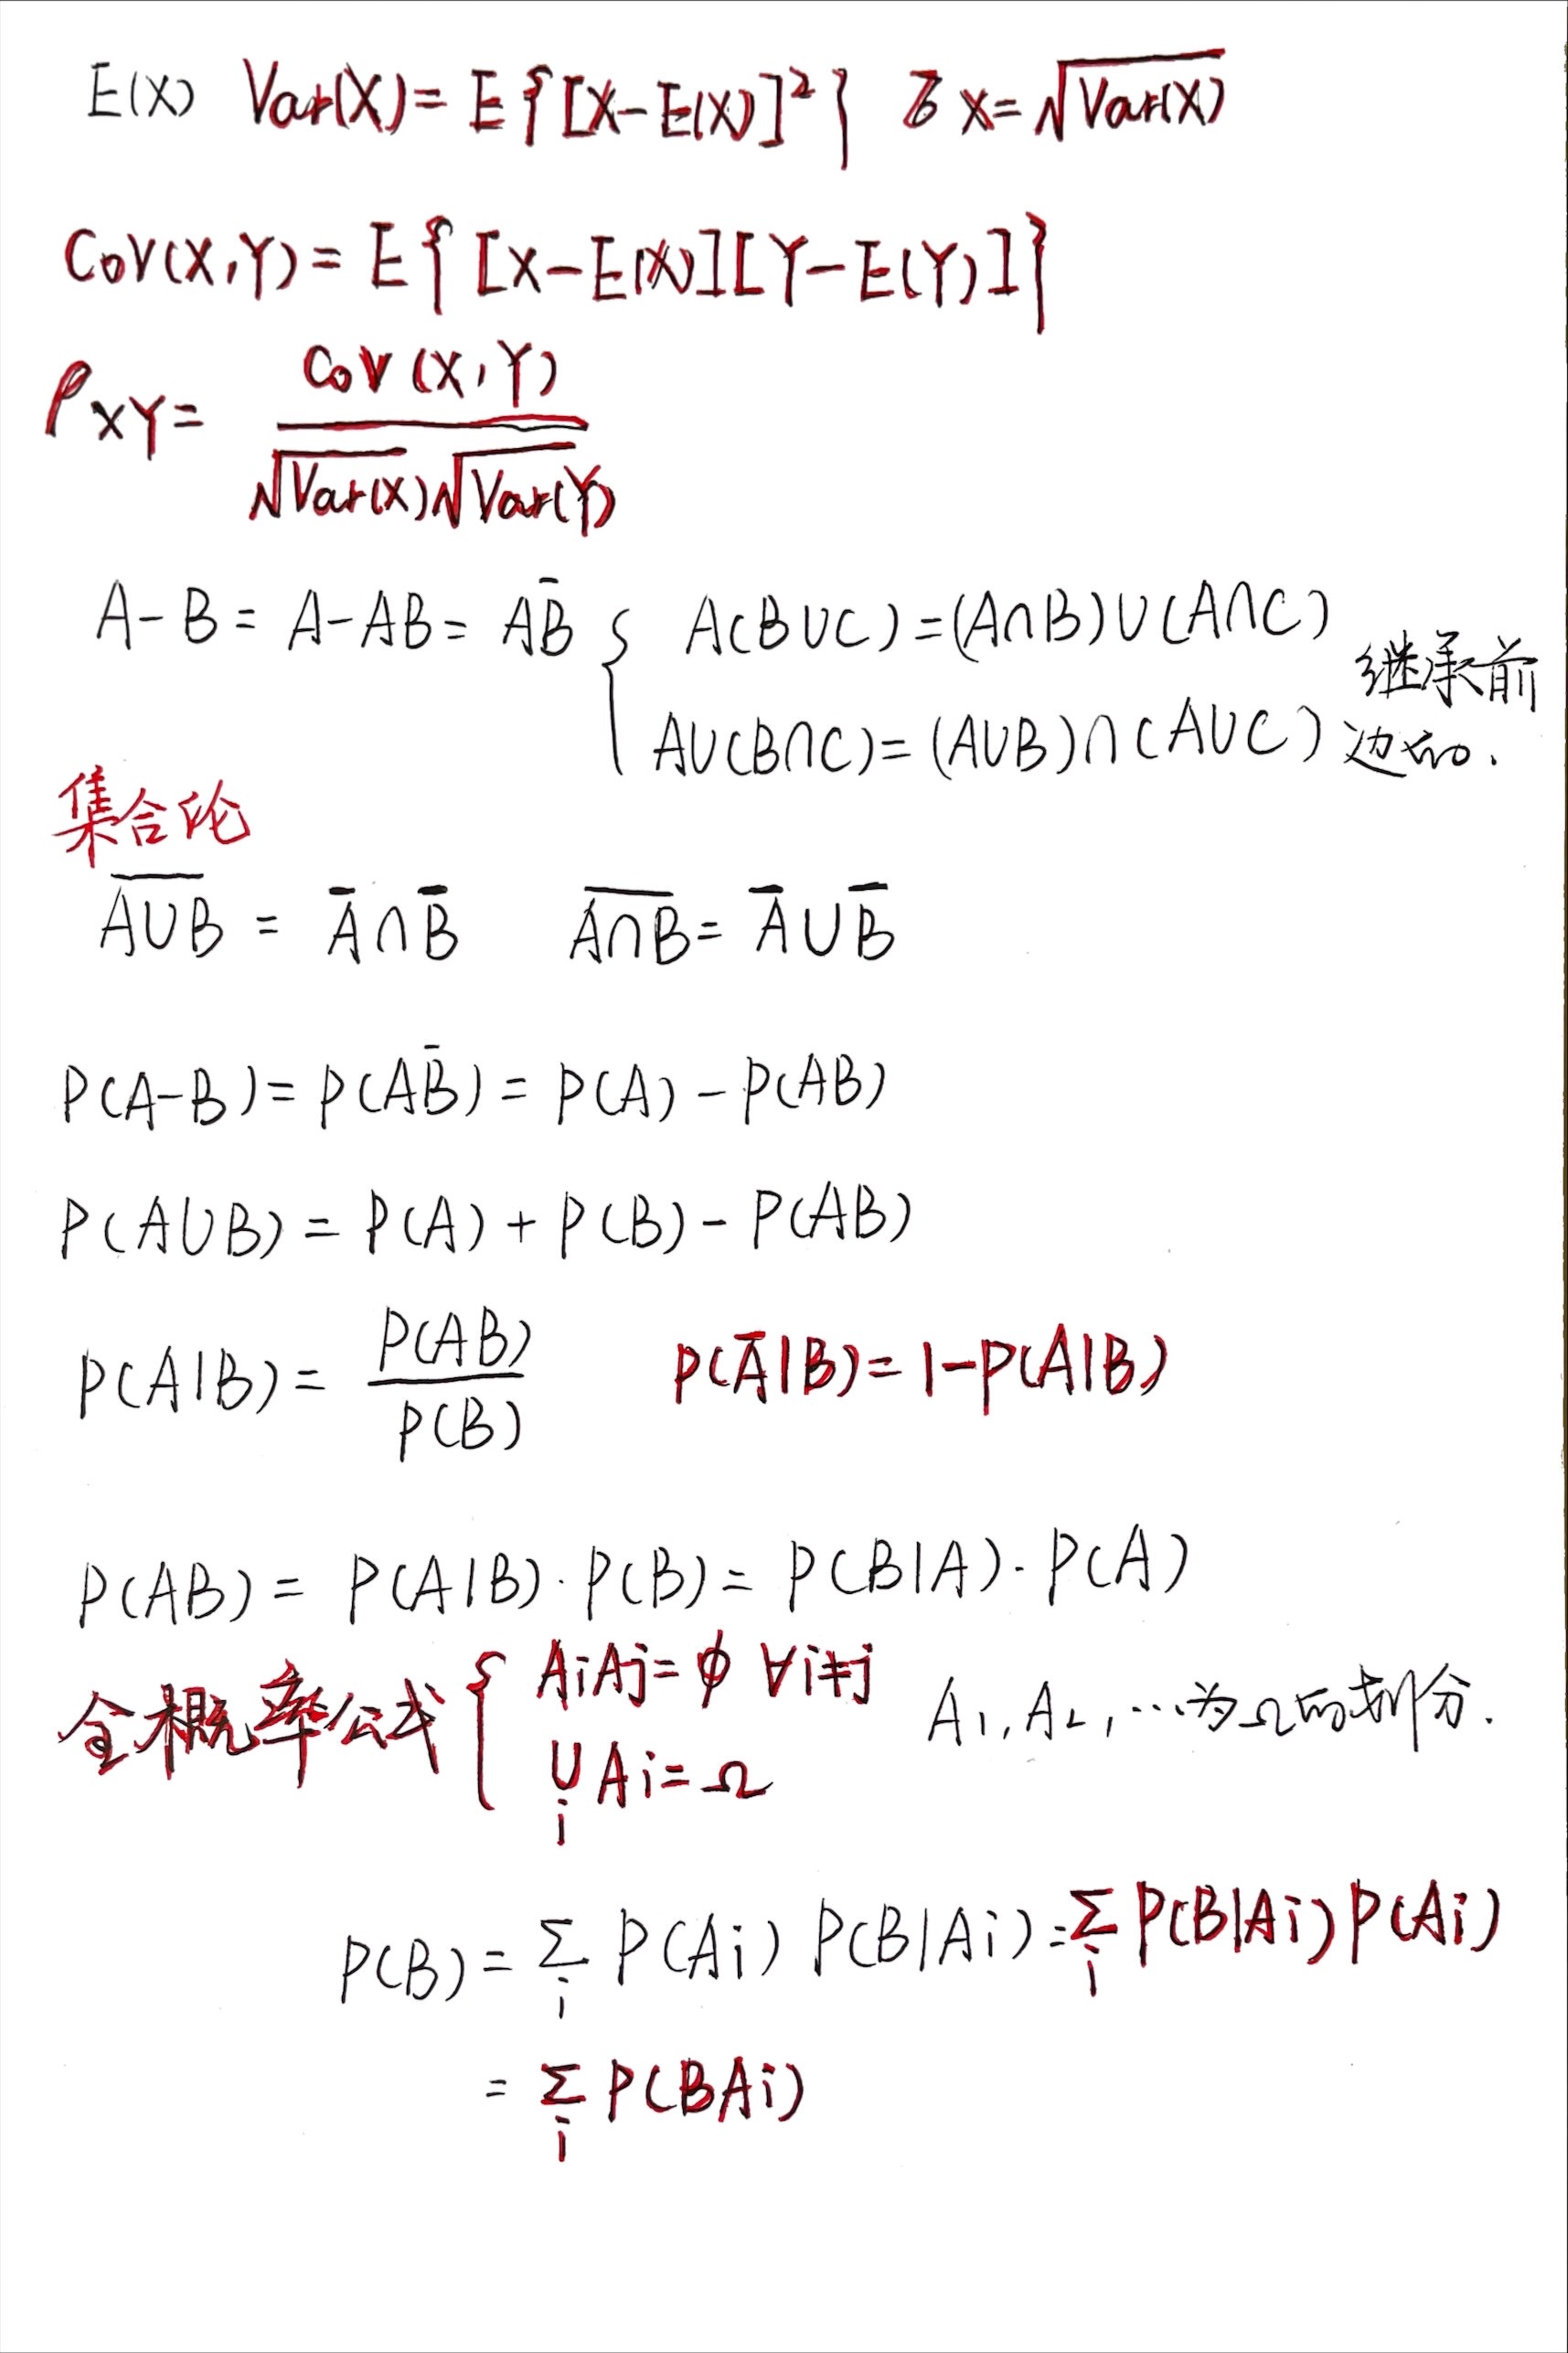 E(X) Var(X)=E{[X-E(X)]²} σx=√Var(X)
Cov(X,Y)=E{[X-E(X)][Y-E(Y)]}
ρXY= Cov(X,Y) / √Var(X)√Var(Y)
A-B=A-AB=AB̄ { A(B∪C)=(A∩B)∪(A∩C)
A∪(B∩C)=(A∪B)∩(A∪C) 继承前
边的.
集合论
A̅∪̅B̅ = Ā∩B̄ A̅∩̅B̅ = Ā∪B̄
P(A-B)=P(AB̄)=P(A)-P(AB)
P(A∪B)=P(A)+P(B)-P(AB)
P(A|B)= P(AB) / P(B) P(Ā|B)=1-P(A|B)
P(AB)=P(A|B)·P(B)=P(B|A)·P(A)
全概率公式 { AiAj=φ ∀i≠j
∪i Ai=Ω A1,A2,…为Ω的划分.
P(B)=∑i P(Ai)P(B|Ai)=∑i P(B|Ai)P(Ai)
=∑i P(BAi)